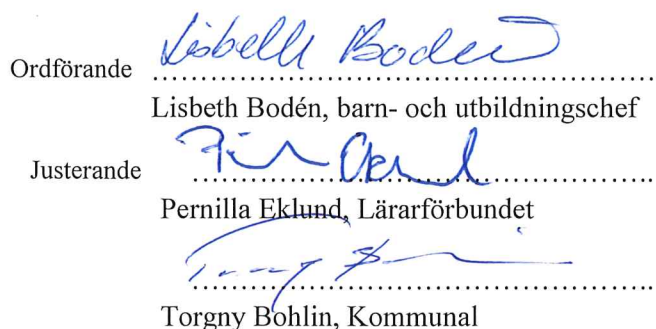 Ordförande Lisbeth Bodén
Lisbeth Bodén, barn- och utbildningschef
Justerande
Pernilla Eklund, Lärarförbundet
Torgny Bohlin, Kommunal